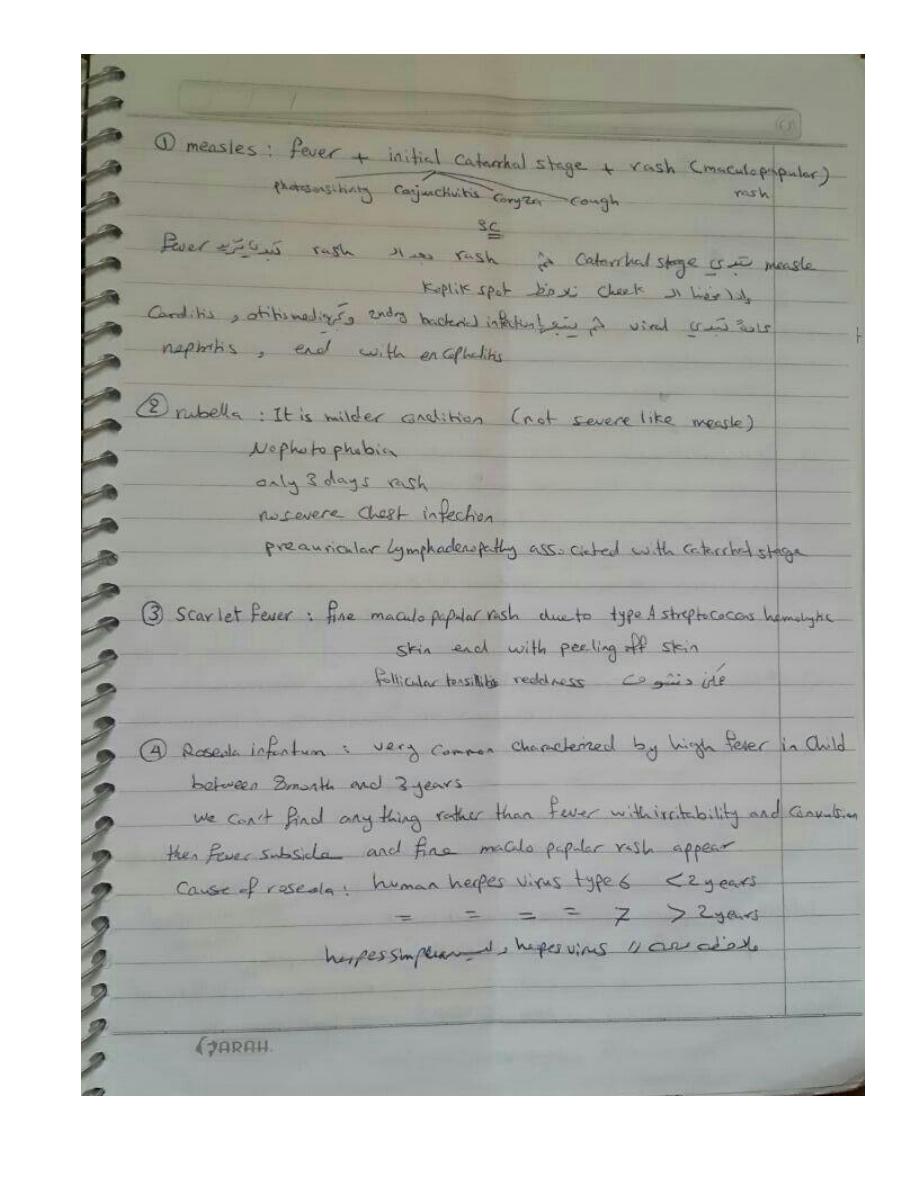 ① measles : fever + initial Catarrhal stage + rash (maculopapular)
photosensitivity Conjunctivitis Coryza cough rash
3C
measle تبدي Catarrhal stage ثم rash بعد الـ rash fever
الـ Cheek نلاحظ Koplik spot
viral ثم 2ndry bacterial infection otitis media و Carditis
nephritis , end with encephalitis
② rubella : It is milder condition (not severe like measle)
No photophobia
only 3 days rash
no severe Chest infection
preauricular lymphadenopathy associated with Catarrhal stage
③ Scarlet fever : fine maculo papular rash due to type A streptococcus hemolytic
skin end with peeling off skin
follicular tonsillitis reddness
④ Roseola infantum : very common characterized by high fever in Child
between 8month and 3years
we can't find any thing rather than fever with irritability and Convulsion
then fever subside and fine maculo papular rash appear
Cause of roseola : human herpes virus type 6 <2years
= = = = 7 >2years
ملاحظة herpes virus وليس herpes simplex
SARAH